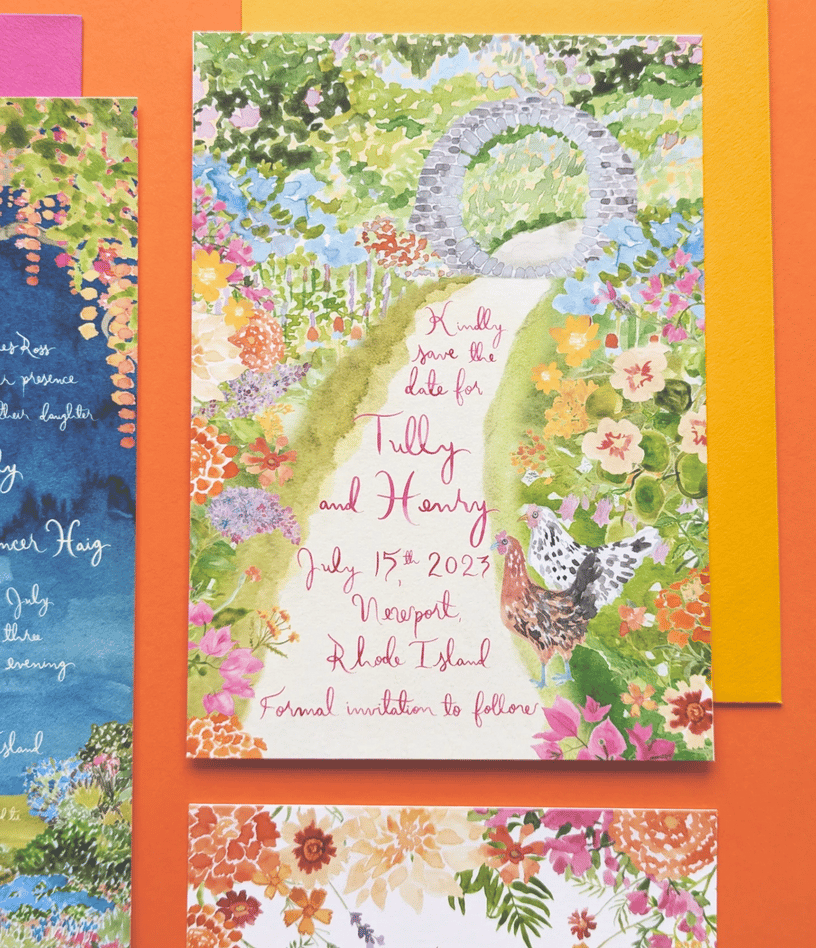 Ross
presence
their daughter
Haig
July
three
evening
Island
Kindly
save the
date for
Tully
and Henry
July 15th, 2023
Newport,
Rhode Island
Formal invitation to follow